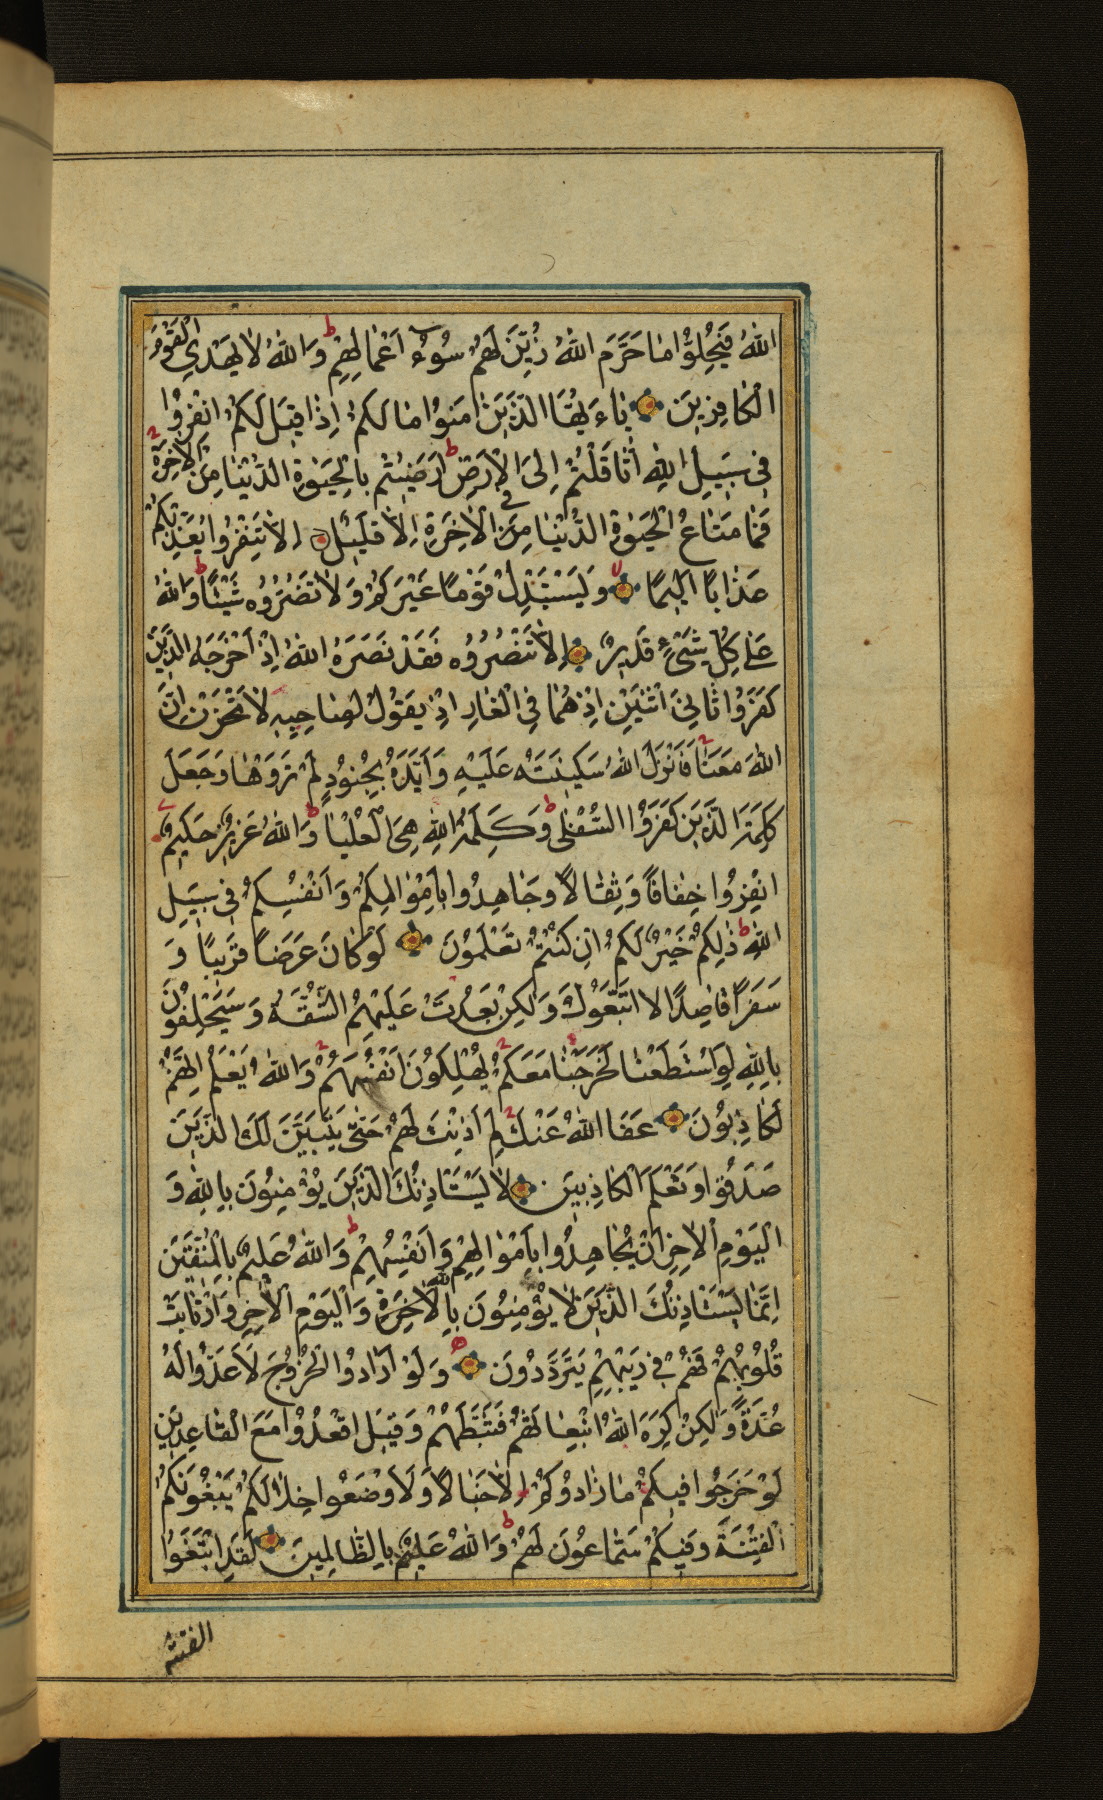 اللهُ فَيُحِلُّوا مَا حَرَّمَ اللهُ زُيِّنَ لَهُمْ سُوءُ اَعْمَالِهِمْ ط وَاللهُ لَا يَهْدِي الْقَوْمَ
الْكَافِرِينَ يَاءَ يُّهَا الَّذِينَ اٰمَنُوا مَا لَكُمْ اِذَا قِيلَ لَكُمُ انْفِرُوا
فِي سَبِيلِ اللهِ اثَّاقَلْتُمْ اِلَى الْاَرْضِ ط اَرَضِيتُمْ بِالْحَيٰوةِ الدُّنْيَا مِنَ الْاٰخِرَةِ
فَمَا مَتَاعُ الْحَيٰوةِ الدُّنْيَا فِي الْاٰخِرَةِ اِلَّا قَلِيلٌ اِلَّا تَنْفِرُوا يُعَذِّبْكُمْ
عَذَابًا اَلِيمًا وَيَسْتَبْدِلْ قَوْمًا غَيْرَكُمْ وَلَا تَضُرُّوهُ شَيْئًا ط وَاللهُ
عَلٰى كُلِّ شَيْءٍ قَدِيرٌ اِلَّا تَنْصُرُوهُ فَقَدْ نَصَرَهُ اللهُ اِذْ اَخْرَجَهُ الَّذِينَ
كَفَرُوا ثَانِيَ اثْنَيْنِ اِذْ هُمَا فِي الْغَارِ اِذْ يَقُولُ لِصَاحِبِهِ لَا تَحْزَنْ اِنَّ
اللهَ مَعَنَا فَاَنْزَلَ اللهُ سَكِينَتَهُ عَلَيْهِ وَاَيَّدَهُ بِجُنُودٍ لَمْ تَرَوْهَا وَجَعَلَ
كَلِمَةَ الَّذِينَ كَفَرُوا السُّفْلٰى ط وَكَلِمَةُ اللهِ هِيَ الْعُلْيَا ط وَاللهُ عَزِيزٌ حَكِيمٌ
انْفِرُوا خِفَافًا وَثِقَالًا وَجَاهِدُوا بِاَمْوَالِكُمْ وَاَنْفُسِكُمْ فِي سَبِيلِ
اللهِ ط ذٰلِكُمْ خَيْرٌ لَكُمْ اِنْ كُنْتُمْ تَعْلَمُونَ لَوْ كَانَ عَرَضًا قَرِيبًا وَ
سَفَرًا قَاصِدًا لَاتَّبَعُوكَ وَلٰكِنْ بَعُدَتْ عَلَيْهِمُ الشُّقَّةُ وَسَيَحْلِفُونَ
بِاللهِ لَوِ اسْتَطَعْنَا لَخَرَجْنَا مَعَكُمْ يُهْلِكُونَ اَنْفُسَهُمْ وَاللهُ يَعْلَمُ اِنَّهُمْ
لَكَاذِبُونَ عَفَا اللهُ عَنْكَ لِمَ اَذِنْتَ لَهُمْ حَتّٰى يَتَبَيَّنَ لَكَ الَّذِينَ
صَدَقُوا وَتَعْلَمَ الْكَاذِبِينَ لَا يَسْتَاْذِنُكَ الَّذِينَ يُؤْمِنُونَ بِاللهِ وَ
الْيَوْمِ الْاٰخِرِ اَنْ يُجَاهِدُوا بِاَمْوَالِهِمْ وَاَنْفُسِهِمْ ط وَاللهُ عَلِيمٌ بِالْمُتَّقِينَ
اِنَّمَا يَسْتَاْذِنُكَ الَّذِينَ لَا يُؤْمِنُونَ بِاللهِ وَالْيَوْمِ الْاٰخِرِ وَارْتَابَتْ
قُلُوبُهُمْ فَهُمْ فِي رَيْبِهِمْ يَتَرَدَّدُونَ وَلَوْ اَرَادُوا الْخُرُوجَ لَاَعَدُّوا لَهُ
عُدَّةً وَلٰكِنْ كَرِهَ اللهُ انْبِعَاثَهُمْ فَثَبَّطَهُمْ وَقِيلَ اقْعُدُوا مَعَ الْقَاعِدِينَ
لَوْ خَرَجُوا فِيكُمْ مَا زَادُوكُمْ اِلَّا خَبَالًا وَلَاَوْضَعُوا خِلَالَكُمْ يَبْغُونَكُمُ
الْفِتْنَةَ وَفِيكُمْ سَمَّاعُونَ لَهُمْ ط وَاللهُ عَلِيمٌ بِالظَّالِمِينَ لَقَدِ ابْتَغَوُا
الفتنة